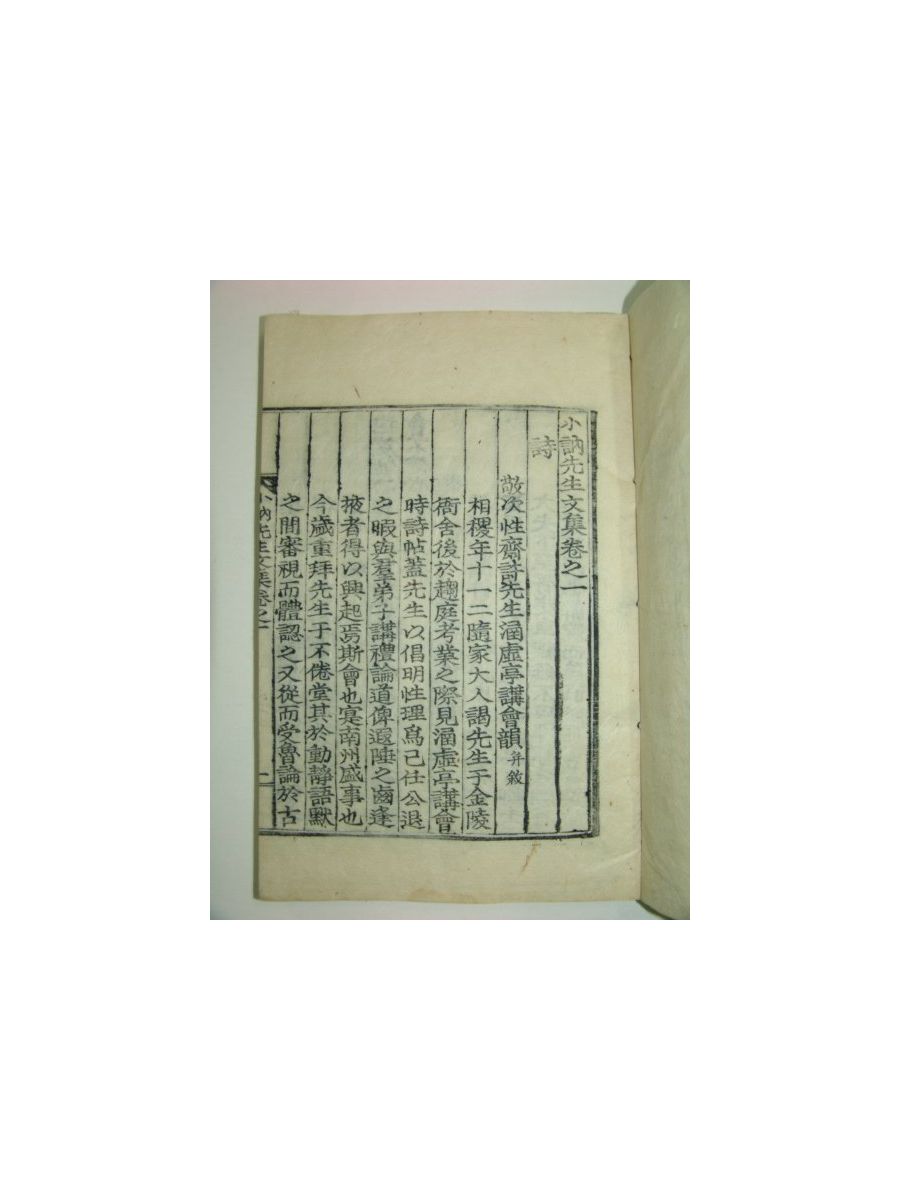 小訥先生文集卷之一
詩
敬次性齋許先生涵虛亭講會韻 幷敘
相稷年十一二隨家大人謁先生于金陵
衙舍後於趨庭考業之際見涵虛亭講會
時詩帖蓋先生以倡明性理爲己任公退
之暇與羣弟子講禮論道俾遐陲之裔逢
掖者得以興起焉斯會也寔南州盛事也
今歲重拜先生于不倦堂其於動靜語默
之間審視而體認之又從而受魯論於古
小訥先生文集卷之一